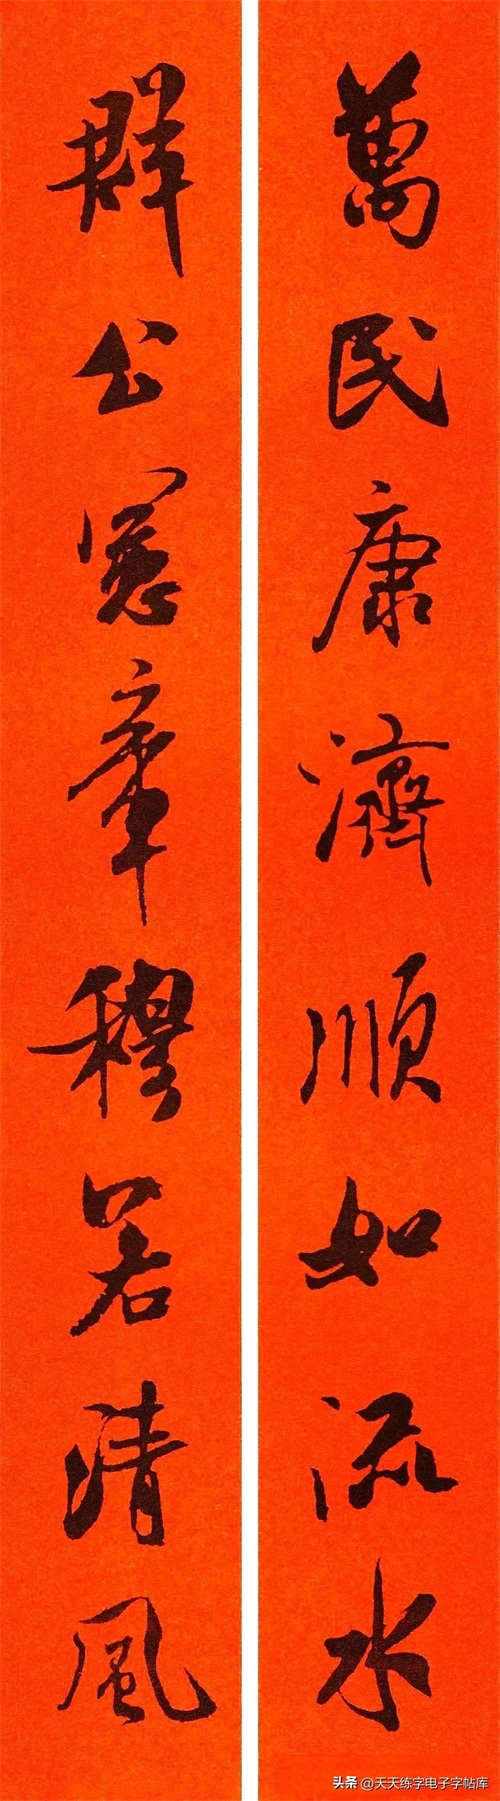 萬民康濟順如流水
群公憲章穆若清風
头条 @天天练字电子字帖库